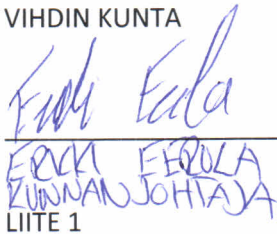 VIHDIN KUNTA
Erkki Eerola
ERKKI EEROLA
KUNNANJOHTAJA
LIITE 1